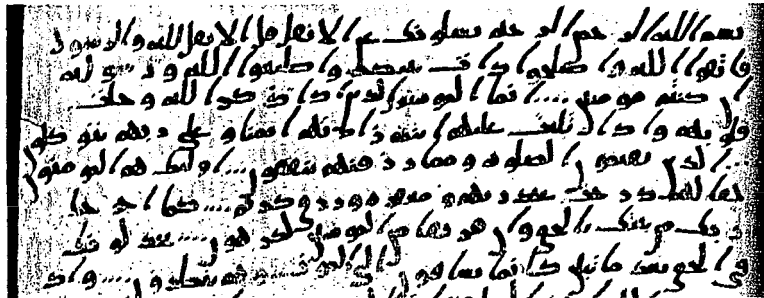 بسم الله الرحمن الرحيم يسلونك عن الانفل قل الانفل لله والرسول
فاتقوا الله واصلحوا ذات بينكم واطيعوا الله ورسوله
ان كنتم مومنين .... انما المومنون الذين اذا ذكر الله وجلت
قلوبهم واذا تليت عليهم ايته زادتهم ايمنا وعلى ربهم يتوكلو
ن... الذين يقيمون الصلوه ومما رزقنهم ينفقون ... اوليك هم المومنون
حقا لهم درجت عند ربهم ومغفره ورزق كريم .... كما اخرجك
ربك من بيتك بالحق وان فريقا من المومنين لكرهون .... يجدلونك
في الحق بعد ما تبين كانما يساقون الى الموت وهم ينظرون .... واذ